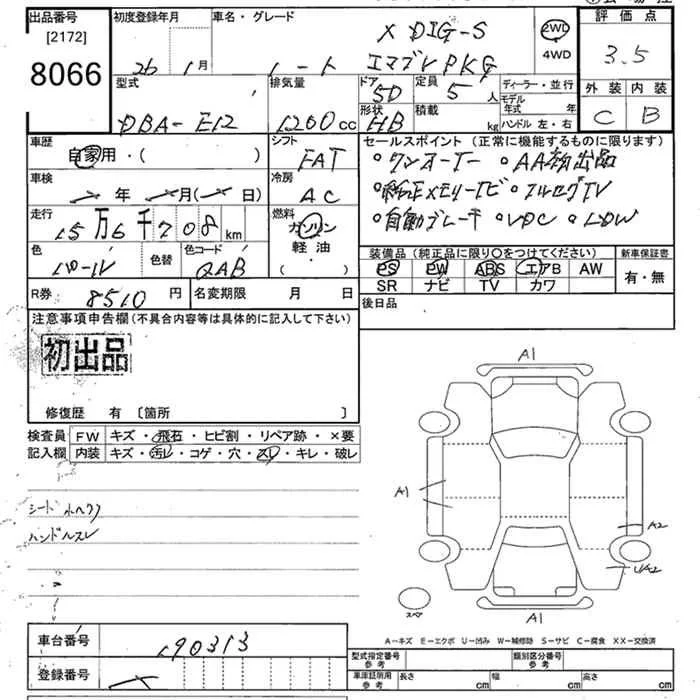 出品番号
[2172]
8066
初度登録年月
26年 1月
車名・グレード
ノート
X DIG-S
エマブレPKG
2WD
4WD
評価点
3.5
外装 内装
C B
型式
DBA-E12
排気量
1200cc
ドア
5D
形状
HB
定員
5人
積載
kg
ディーラー・並行
モデル年式 年
ハンドル 左・右
車歴
自家用・( )
シフト
FAT
車検
年 月( 日)
冷房
AC
走行
15万6千708km
燃料
ガソリン
軽油
・( )
色
パール
色替
色コード
QAB
R券 8510円
名変期限 月 日
セールスポイント (正常に機能するものに限ります)
・ワンオーナー ・AA初出品
・純正メモリーナビ ・フルセグTV
・自動ブレーキ ・VDC ・LDW
装備品 (純正品に限り○をつけてください)
新車保証書
PS PW ABS エアB AW
SR ナビ TV カワ
有・無
後日品
注意事項申告欄(不具合内容等は具体的に記入して下さい)
初出品
修復歴 有 〔箇所 〕
検査員
記入欄
FW キズ・飛石・ヒビ割・リペア跡・×要
内装 キズ・汚レ・コゲ・穴・スレ・キレ・破レ
シート
ハンドルスレ
A1
A1
A2
UA2
A1
スペア
A-キズ E-エクボ U-凹み W-補修跡 S-サビ C-腐食 XX-交換済
車台番号
190313
登録番号
型式指定番号
参考
類別区分番号
参考
車庫証明用
参考
長さ cm
幅 cm
高さ cm